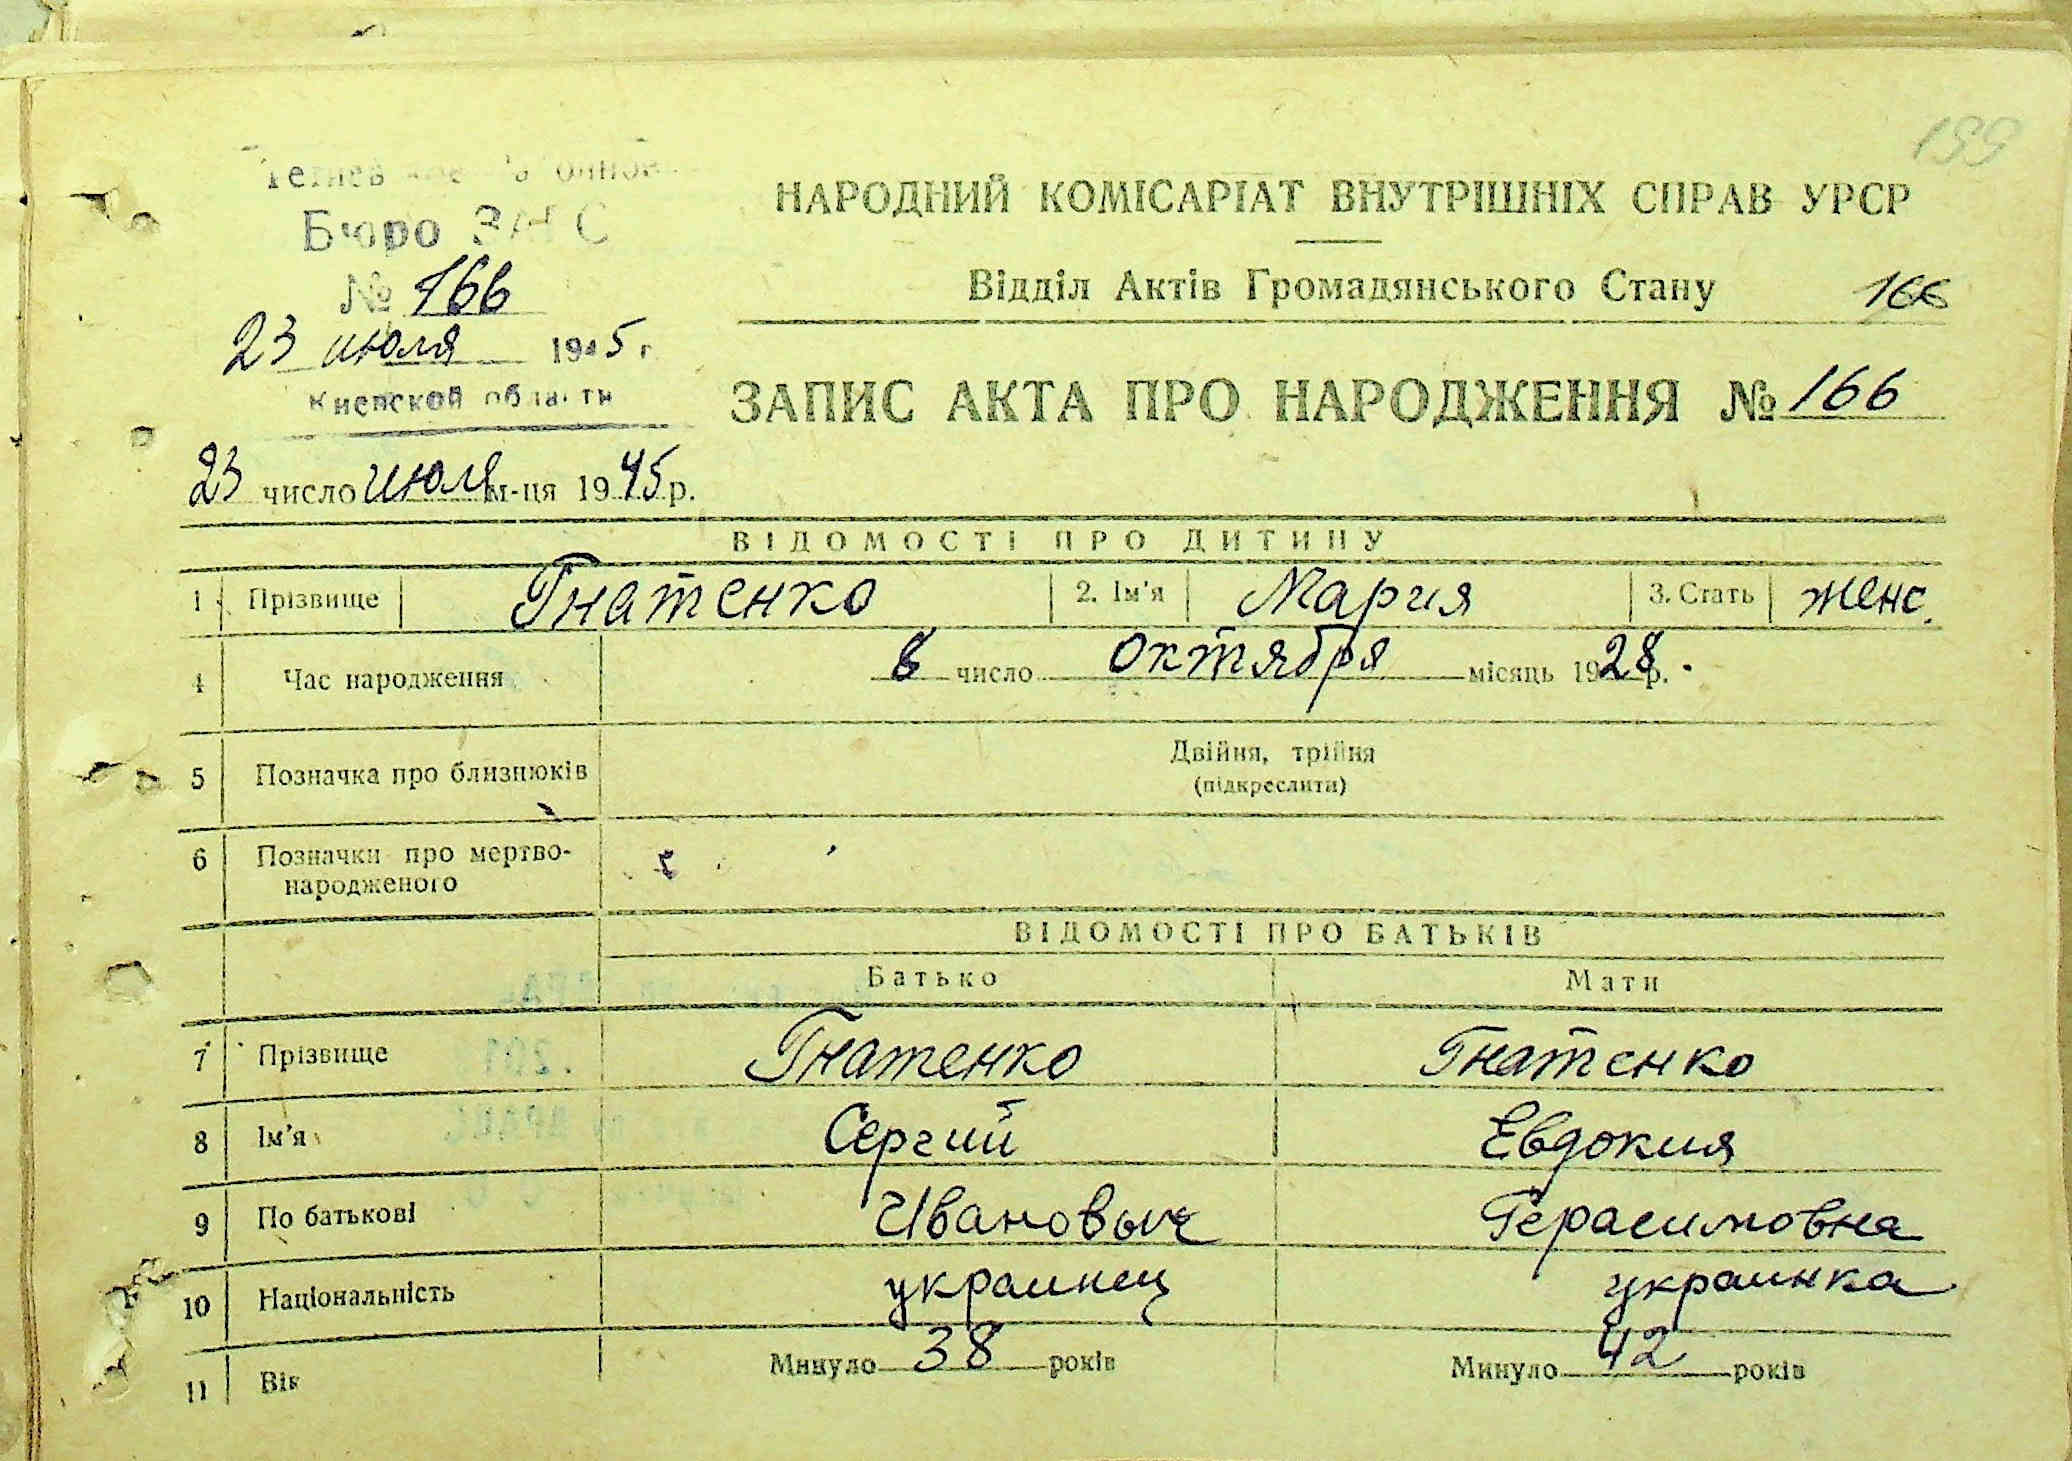 199
Бюро ЗАГС
№ 166
23 июля 1945 г.
Киевской области
НАРОДНИЙ КОМІСАРІАТ ВНУТРІШНІХ СПРАВ УРСР
Відділ Актів Громадянського Стану 166
ЗАПИС АКТА ПРО НАРОДЖЕННЯ № 166
23 число июля м-ця 1945 р.
ВІДОМОСТІ ПРО ДИТИНУ
1 Прізвище Гнатенко 2. Ім'я Мария 3. Стать женс.
4 Час народження 8 число октября місяць 1928 р.
5 Позначка про близнюків Двійня, трійня
(підкреслити)
6 Позначки про мертво-
народженого
ВІДОМОСТІ ПРО БАТЬКІВ
Батько Мати
7 Прізвище Гнатенко Гнатенко
8 Ім'я Сергий Евдокия
9 По батькові Ивановыч Герасимовна
10 Національність украинец украинка
11 Вік Минуло 38 років Минуло 42 років